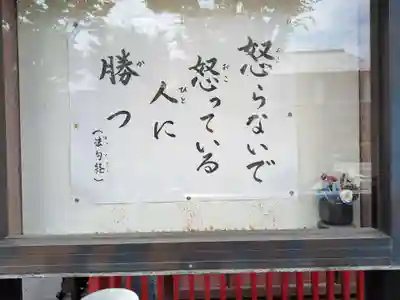 怒らないで
怒っている
人に
勝つ
(法句経)